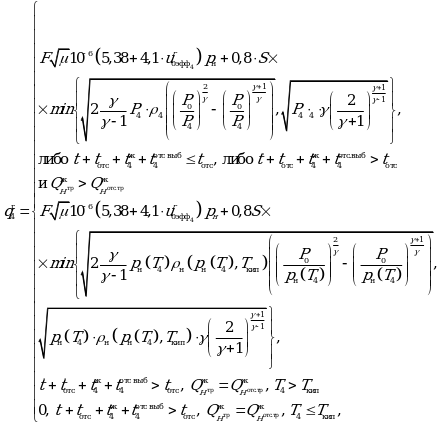 F√μ 10⁻⁶ (5,38 + 4,1·u_эфф₄) p_н + 0,8·S×
× min { √(2 γ/(γ−1) P₄·ρ₄ ((P₀/P₄)^(2/γ) − (P₀/P₄)^((γ+1)/γ))), √(P₄·₄·γ(2/(γ+1))^((γ+1)/(γ-1))) },
либо t + t_отс + t₄ + t₄^отс.выб ≤ t_отс, либо t + t_отс + t₄ + t₄^отс.выб > t_отс
и Q_Нтр > Q_Нотс.тр
q₄ = { F√μ 10⁻⁶ (5,38 + 4,1·u_эфф₄) p_н + 0,8S×
× min { √(2 γ/(γ−1) p_н(T₄) ρ_н(p_н(T₄), T_кип) ((P₀/p_н(T₄))^(2/γ) − (P₀/p_н(T₄))^((γ+1)/γ))),
√(p_н(T₄)·ρ_н(p_н(T₄), T_кип)·γ(2/(γ+1))^((γ+1)/(γ-1))) },
t + t_отс + t₄ + t₄^отс.выб > t_отс, Q_Нтр = Q_Нотс.тр, T₄ > T_кип
0, t + t_отс + t₄ + t₄^отс.выб > t_отс, Q_Нтр = Q_Нотс.тр, T₄ ≤ T_кип,